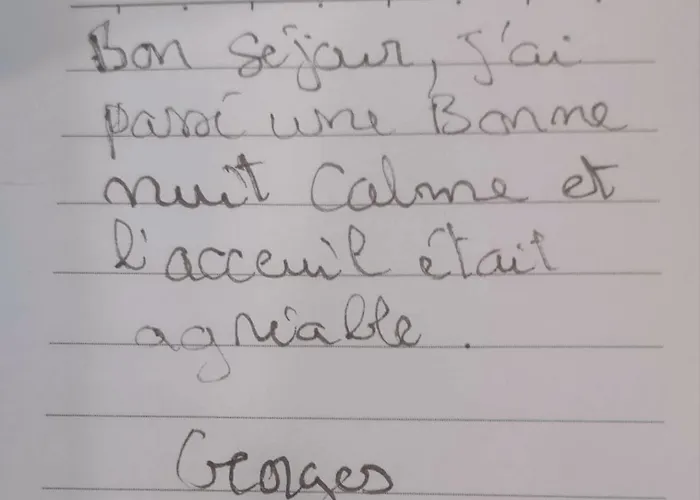 Bon séjour, j'ai
passé une Bonne
nuit Calme et
l'acceuil était
agréable.
Georges